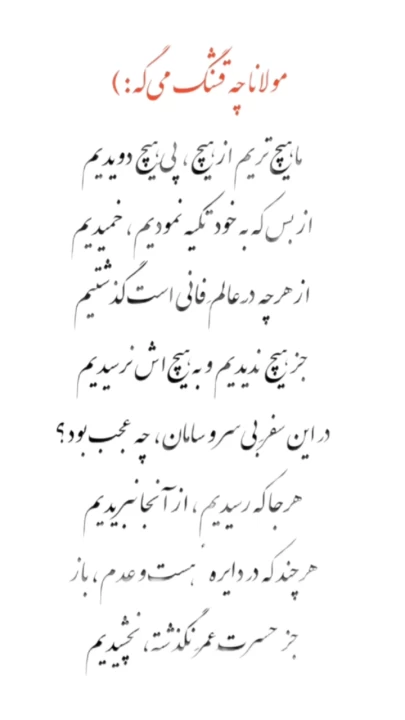 مولانا چه قشنگ می‌گه :)
ما هیچ تریم از هیچ ، پی هیچ دویدیم
از بس که به خود تکیه نمودیم ، خمیدیم
از هرچه در عالم فانی است گذشتیم
جز هیچ ندیدیم و به هیچ اش نرسیدیم
در این سفر بی سر و سامان ، چه عجب بود؟
هرجا که رسیدیم ، از آنجا نبریدیم
هرچند که در دایره هست و عدم ، باز
جز حسرت عمر نگذشته ، نچشیدیم